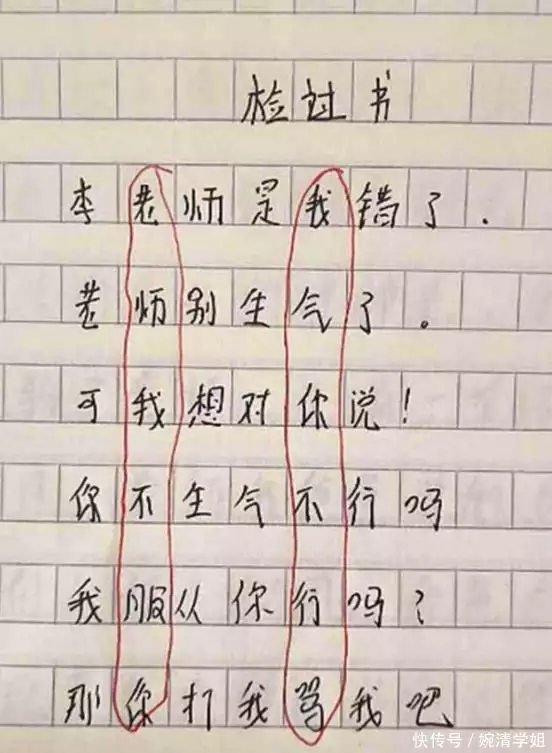 检过书
李老师是我错了.
老师别生气了。
可我想对你说!
你不生气不行吗
我服从你行吗?
那你打我骂我吧
快传号/婉清学姐